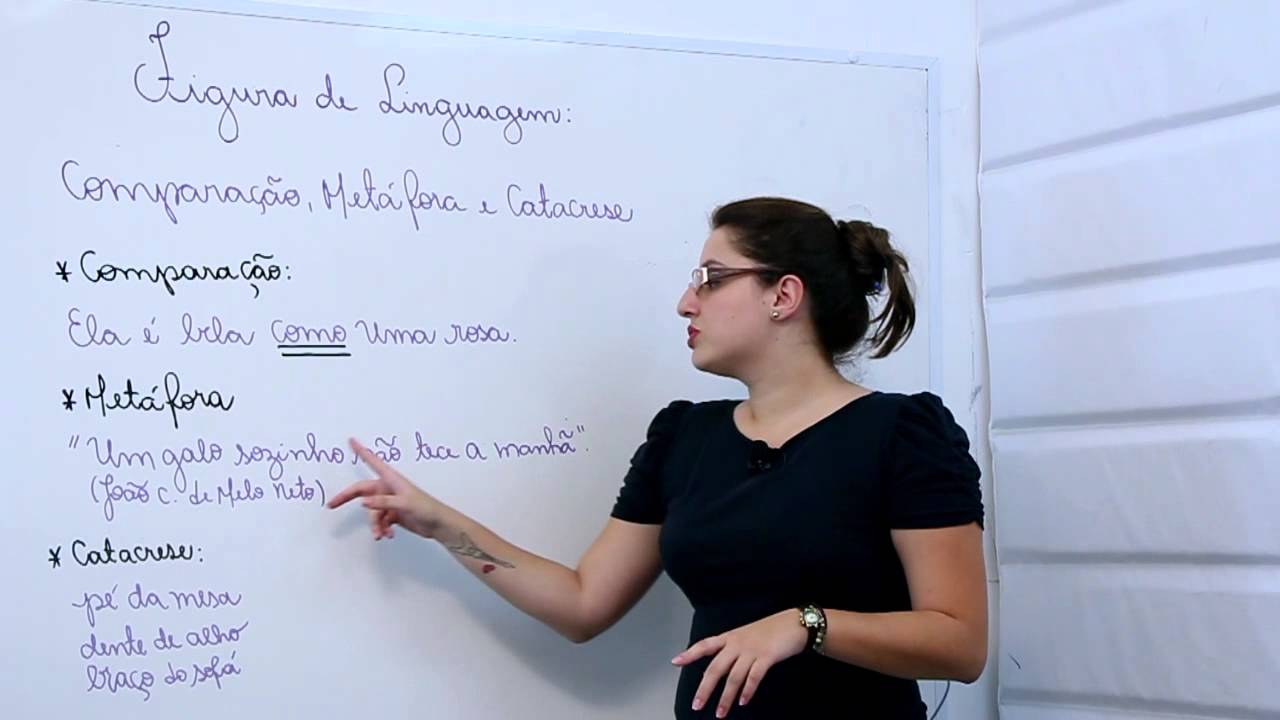 Figura de Linguagem:
Comparação, Metáfora e Catacrese
* Comparação:
Ela é bela como uma rosa.
* Metáfora
"Um galo sozinho não tece a manhã".
(João C. de Melo Neto)
* Catacrese:
pé da mesa
dente de alho
braço do sofá